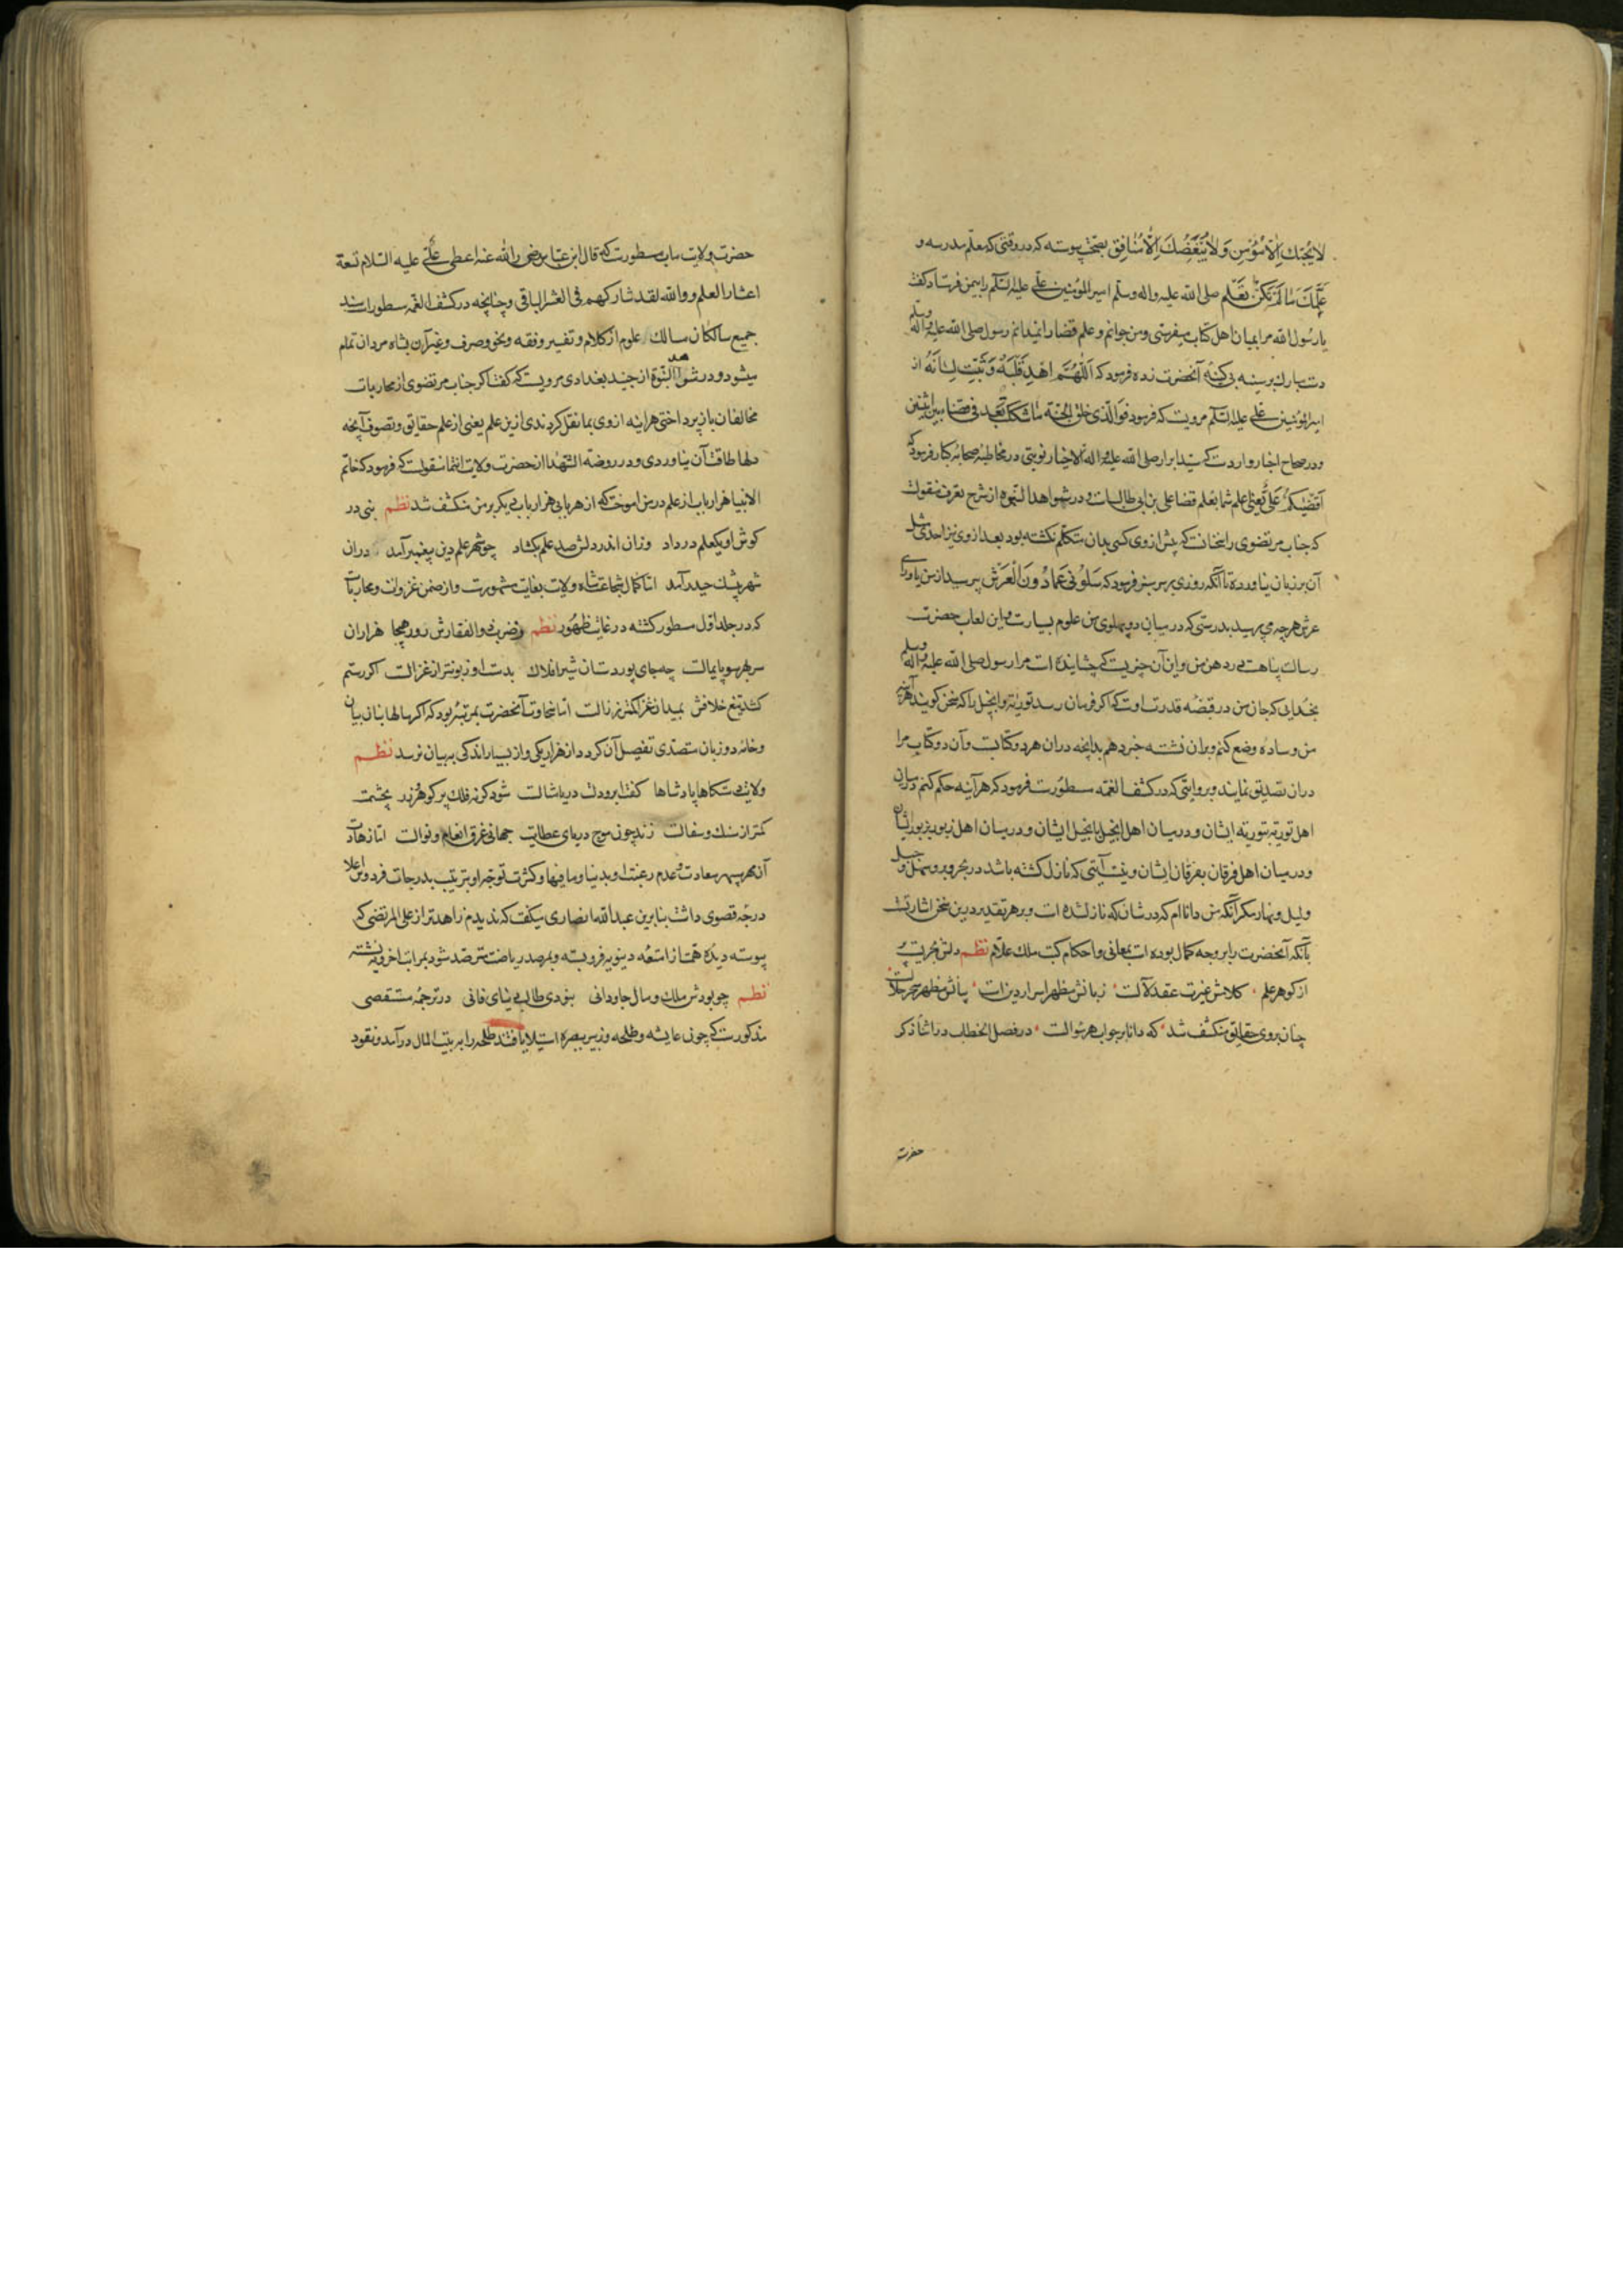 لا یُحبّک اِلّا مُؤمِن وَلا یُبغِضُکَ اِلّا مُنافِق بصحّت پیوسته که در وقتی که معلّم مدرسه و
عَلَّمَکَ مَا لَم تَکُن تَعلَم صلی الله علیه واله وسلّم امیر المؤمنین علی علیه السّلم را بیمن فرستاد گفت
یا رسُول الله مرا بمیان اهل کتاب میفرستی ومن جوانم و علم قضا را نمیدانم رسول صلی الله علیه واله وسلم
دست مبارک بر سینه بی کینهٔ آنحضرت زده فرمود که اَللّهُمَّ اهدِ قَلبَهُ وَ ثَبِّت لِسانَهُ از
امیر المؤمنین علی علیه السّلم مرویست که فرمود فوَالَّذی خلق الجنّة ما شککت بعد فی قضاء بین اثنین
ودر صحاح اخبار واردست که سیّد ابرار صلی الله علیه واله الاخیار نوبتی در مخاطبهٔ صحابهٔ کبار فرمود که
اَقضیٰکُم عَلیٌّ یعنی اعلم شما بعلم قضا علی بن ابی طالبست ودر شواهد النبوه از شرح تعرف منقولست
که جناب مرتضوی را سخنانست که پیش از وی کسی بدان متکلّم نگشته بود بعد از وی نیز احدی مثل
آن بر زبان نیاورده تا آنکه روزی بر سر منبر فرمود که سَلُونی عَمّا دُونَ الْعَرْش بپرسید از من ما ورای
عرش هرچه می پرسید بدرستی که در میان دو پهلوی من علوم بسیارست واین لعاب حضرت
رسالت پناهست در دهن من واین آن چیزیست که چشانیده است مرا رسول صلی الله علیه واله وسلم
بخدایی که جان من در قبضهٔ قدرت اوست که اگر فرمان رسد توریة وانجیل را که سخن گویند هر آینه
من وساده وضع کنم وبران نشسته خبر دهم بدانچه دران هر دو کتابست وآن دو کتاب مرا
دران تصدیق نمایند وبروایتی که در کشف الغمّه مسطورست فرمود که هر آینه حکم کنم در میان
اهل توریة بتوریه ایشان ودر میان اهل انجیل بانجیل ایشان ودر میان اهل زبور بزبور ایشان
ودر میان اهل فرقان بفرقان ایشان ونیست آیتی که نازل گشته باشد در بحر وبر وسهل وجبل
ولیل ونهار مگر آنکه من داناام که در شان که نازل شده است وبر هر تقدیر درین سخن اشارتست
بآنکه آنحضرت را بر وجه کمال بوده است بمعانی واحکام کتب ملک علّام نظم دلش بحریست پر
از گوهر علم کلامش غیرت عقد لآلست زبانش مظهر اسرار دین است بیانش مظهر سحر حلالست
چنان بروی حقایق منکشف شد که دانا بر جواب هر سوالست در فصل الخطاب در اثنا ذکر
حضرت
حضرت ولایت ماب مسطورست که قال ابن عباس رضی الله عنه اعطی علیٌّ علیه السّلام تسعة
اعشار العلم ووالله لقد شارکهم فی العشر الباقی وچنانچه در کشف الغمّه مسطورست سند
جمیع سالکان مسالک علوم از کلام وتفسیر وفقه ونحو وصرف وغیر آن بشاه مردان تمام
میشود ودر شواهد النبوّة از جنید بغدادی مرویست که گفت اگر جناب مرتضوی از محاربات
مخالفان باز پرداختی هر آینه از وی بما نقل کردندی ازین علم یعنی از علم حقایق وتصوف آنچه
دلها طاقت آن نیاوردی ودر روضه الشهدا از حضرت ولایت انتما منقولست که فرمود که خاتم
الانبیا هزار باب از علم در من اموخت که از هر بابی هزار باب دیگر بر من منکشف شد نظم نبی در
گوش او یک علم در داد وزان اندر دلش صد علم بگشاد چو شهر علم دین پیغمبر آمد دران
شهر بیشک حیدر آمد اما کمال شجاعت شاه ولایت بغایت مشهورست واز ضمن غزوات ومحاربات
که در جلد اول مسطور گشته در غایت ظهُور نظم زضرب ذوالفقارش روز هیجا هزاران
سر بهر سو پایمالست چه جای پور دستان شیر افلاک بدست او زبون تر از غزالست اگر رستم
کشد تیغ خلافش بمیدان غزا کمتر ز زالست اما سخاوت آنحضرت بمرتبهٔ بود که اگر سالها بنان بیان
وخامه دو زبان متصدّی تفصیل آن گردد از هزار یکی واز بسیار اندکی به بیان نرسد نظم
ولایت دستگاها پادشاها کفت ابر ودلت دریا مثالست شود گر نه فلک پر گوهر وزر بچشمت
کمتر از سنگ وسفالست زند چون موج دریای عطایت جهانی غرق انعام ونوالست اما زهادت
آن مهر سپهر سعادت وعدم رغبت او بدنیا وما فیها وکثرت توجه او بترتیب بدرجات فردوس اعلا
درجهٔ قصوی داشت بنابرین عبد الله انصاری میگفت که ندیدیم زاهدتر از علی المرتضی که
پیوسته دیدهٔ همّت از امتعهٔ دینویه فروبسته وبمرصد ریاضت مترصّد شود بمراتب اخرویه نشسته
نظم چو بودش ملک ومال جاودانی نبودی طالب دنیای فانی در ترجمهٔ مستقصی
مذکورست که چون عایشه وطلحه وزبیر ببصره استیلا یافتند طلحه را بر بیت المال در آمد ونقود